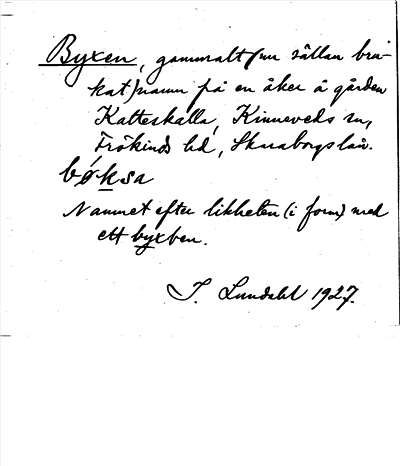 Byxen, gammalt (nu sällan bru-
kat) namn på en åker å gården
Katteskalla, Kinneveds sn,
Frökinds hd, Skaraborgs län.
bóksa
Namnet efter likheten (i form) med
ett byxben.
J. Lundahl 1927.